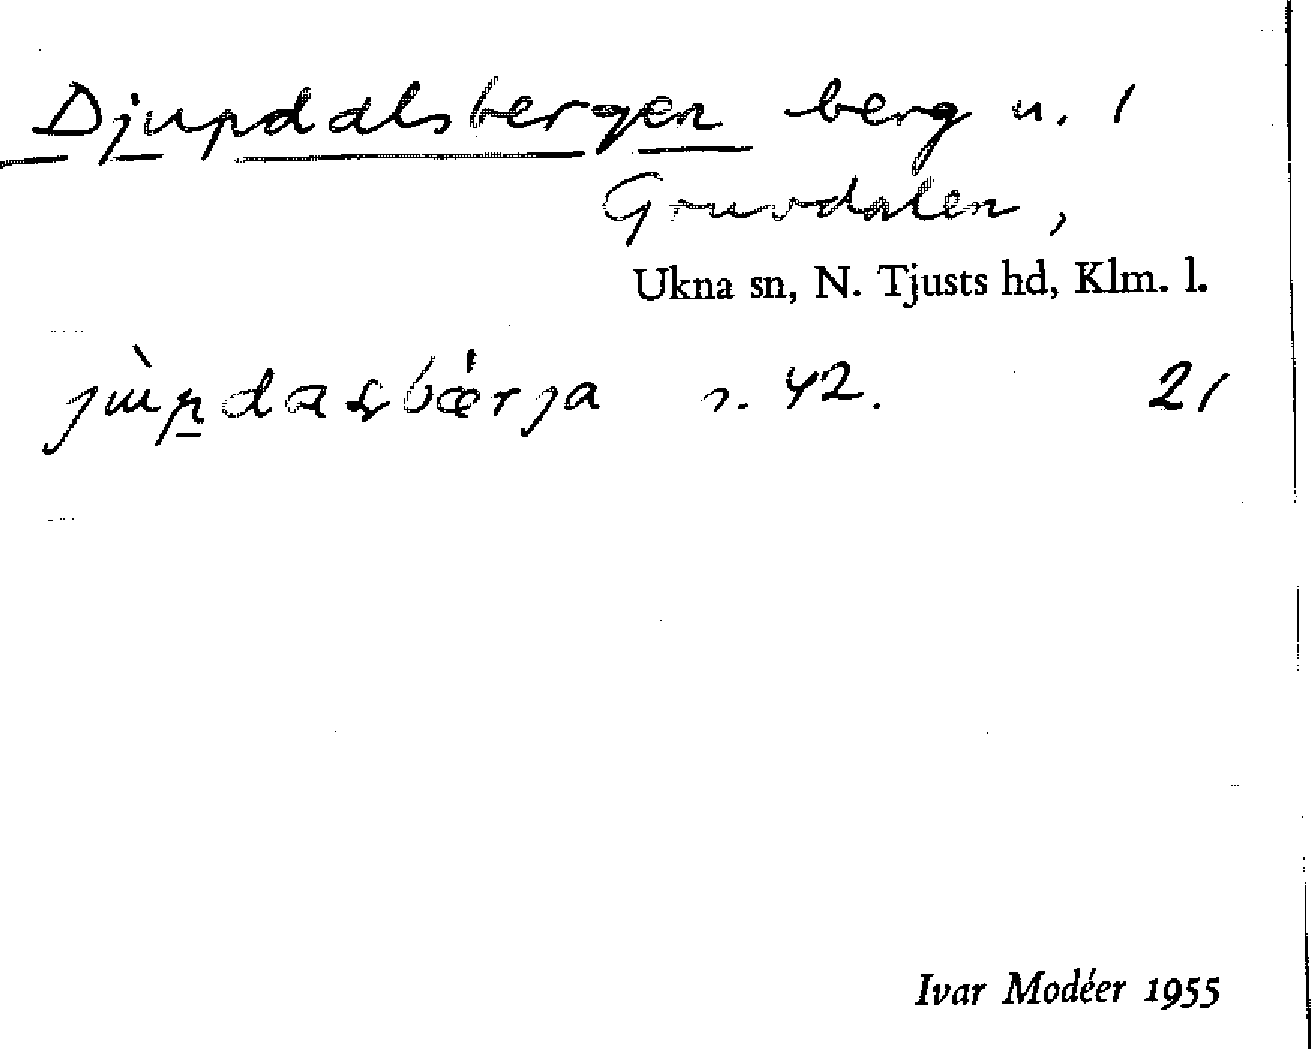 Djupdalsbergen berg u. 1
Gruvdalen,
Ukna sn, N. Tjusts hd, Klm. l.
s. 42. 21
Ivar Modéer 1955